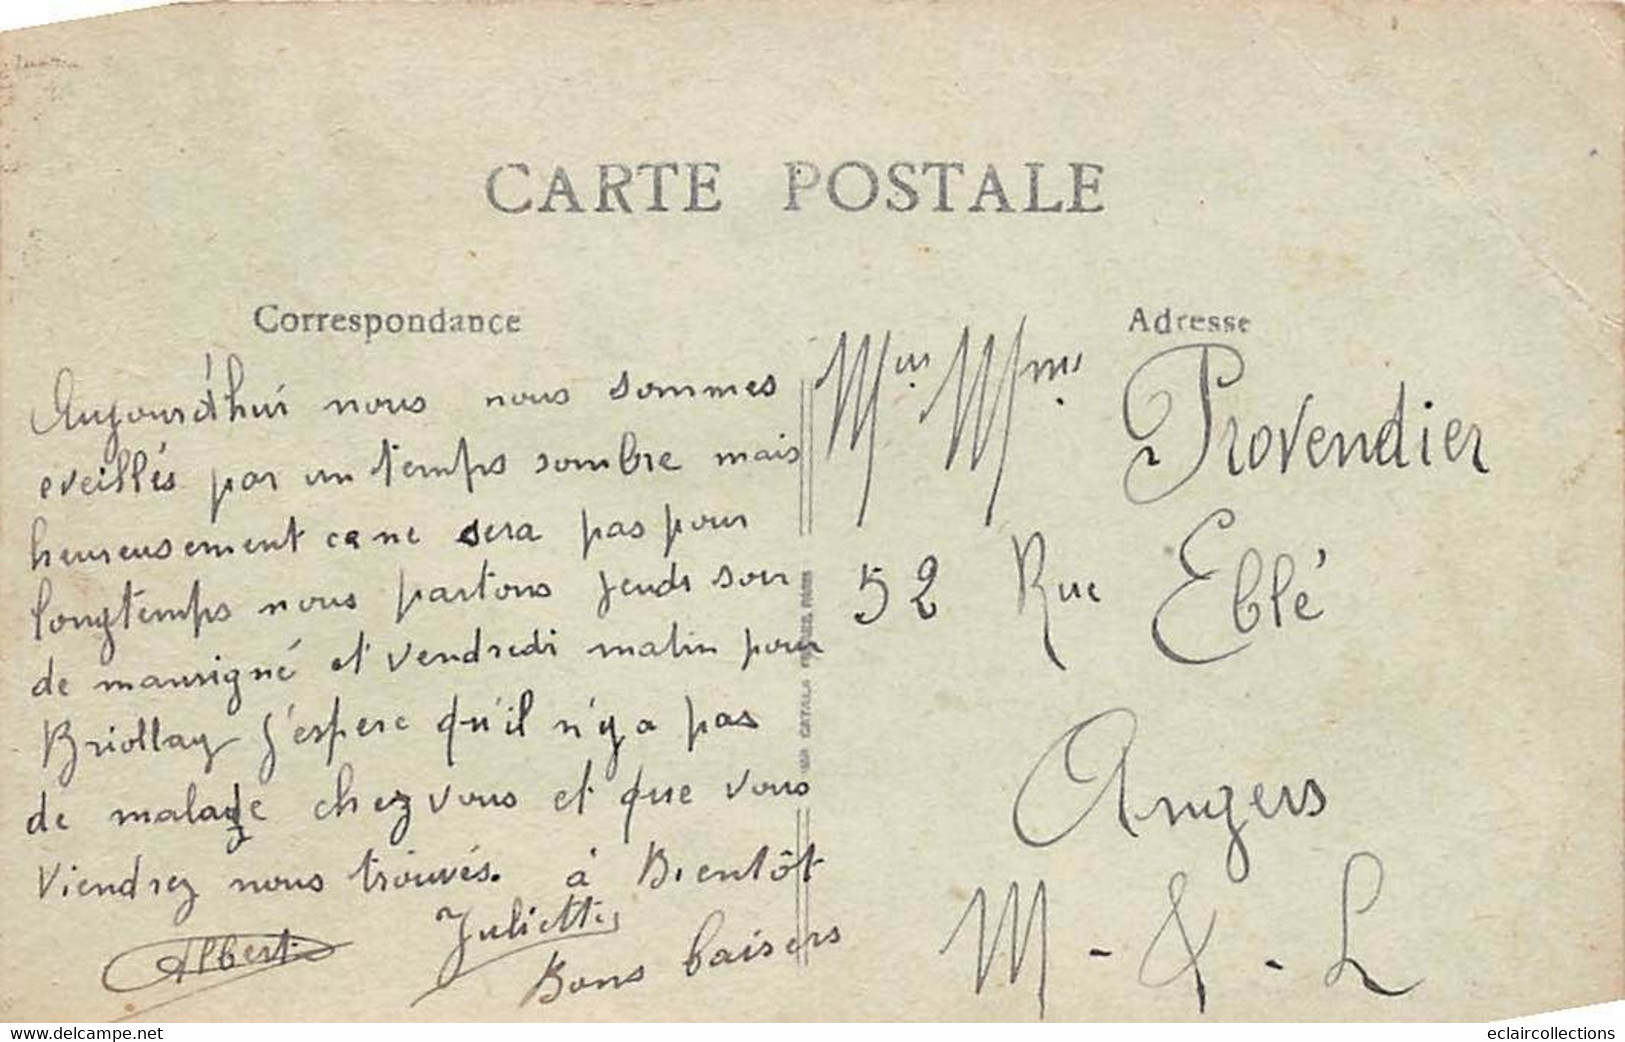 CARTE POSTALE
Correspondance
Aujourd'hui nous nous sommes
eveillés par un temps sombre mais
heureusement ca ne sera pas pour
longtemps nous partons jeudi soir
de mansigné et vendredi matin pour
Briollay j'espere qu'il n'y a pas
de malade chez vous et que vous
viendrez nous trouvés. à Bientôt
Albert Juliette
Bons baisers
CATALA FRERES PARIS
Adresse
Mr Mme Provendier
52 Rue Eblé
Angers
M-&-L
www.delcampe.net
eclaircollections